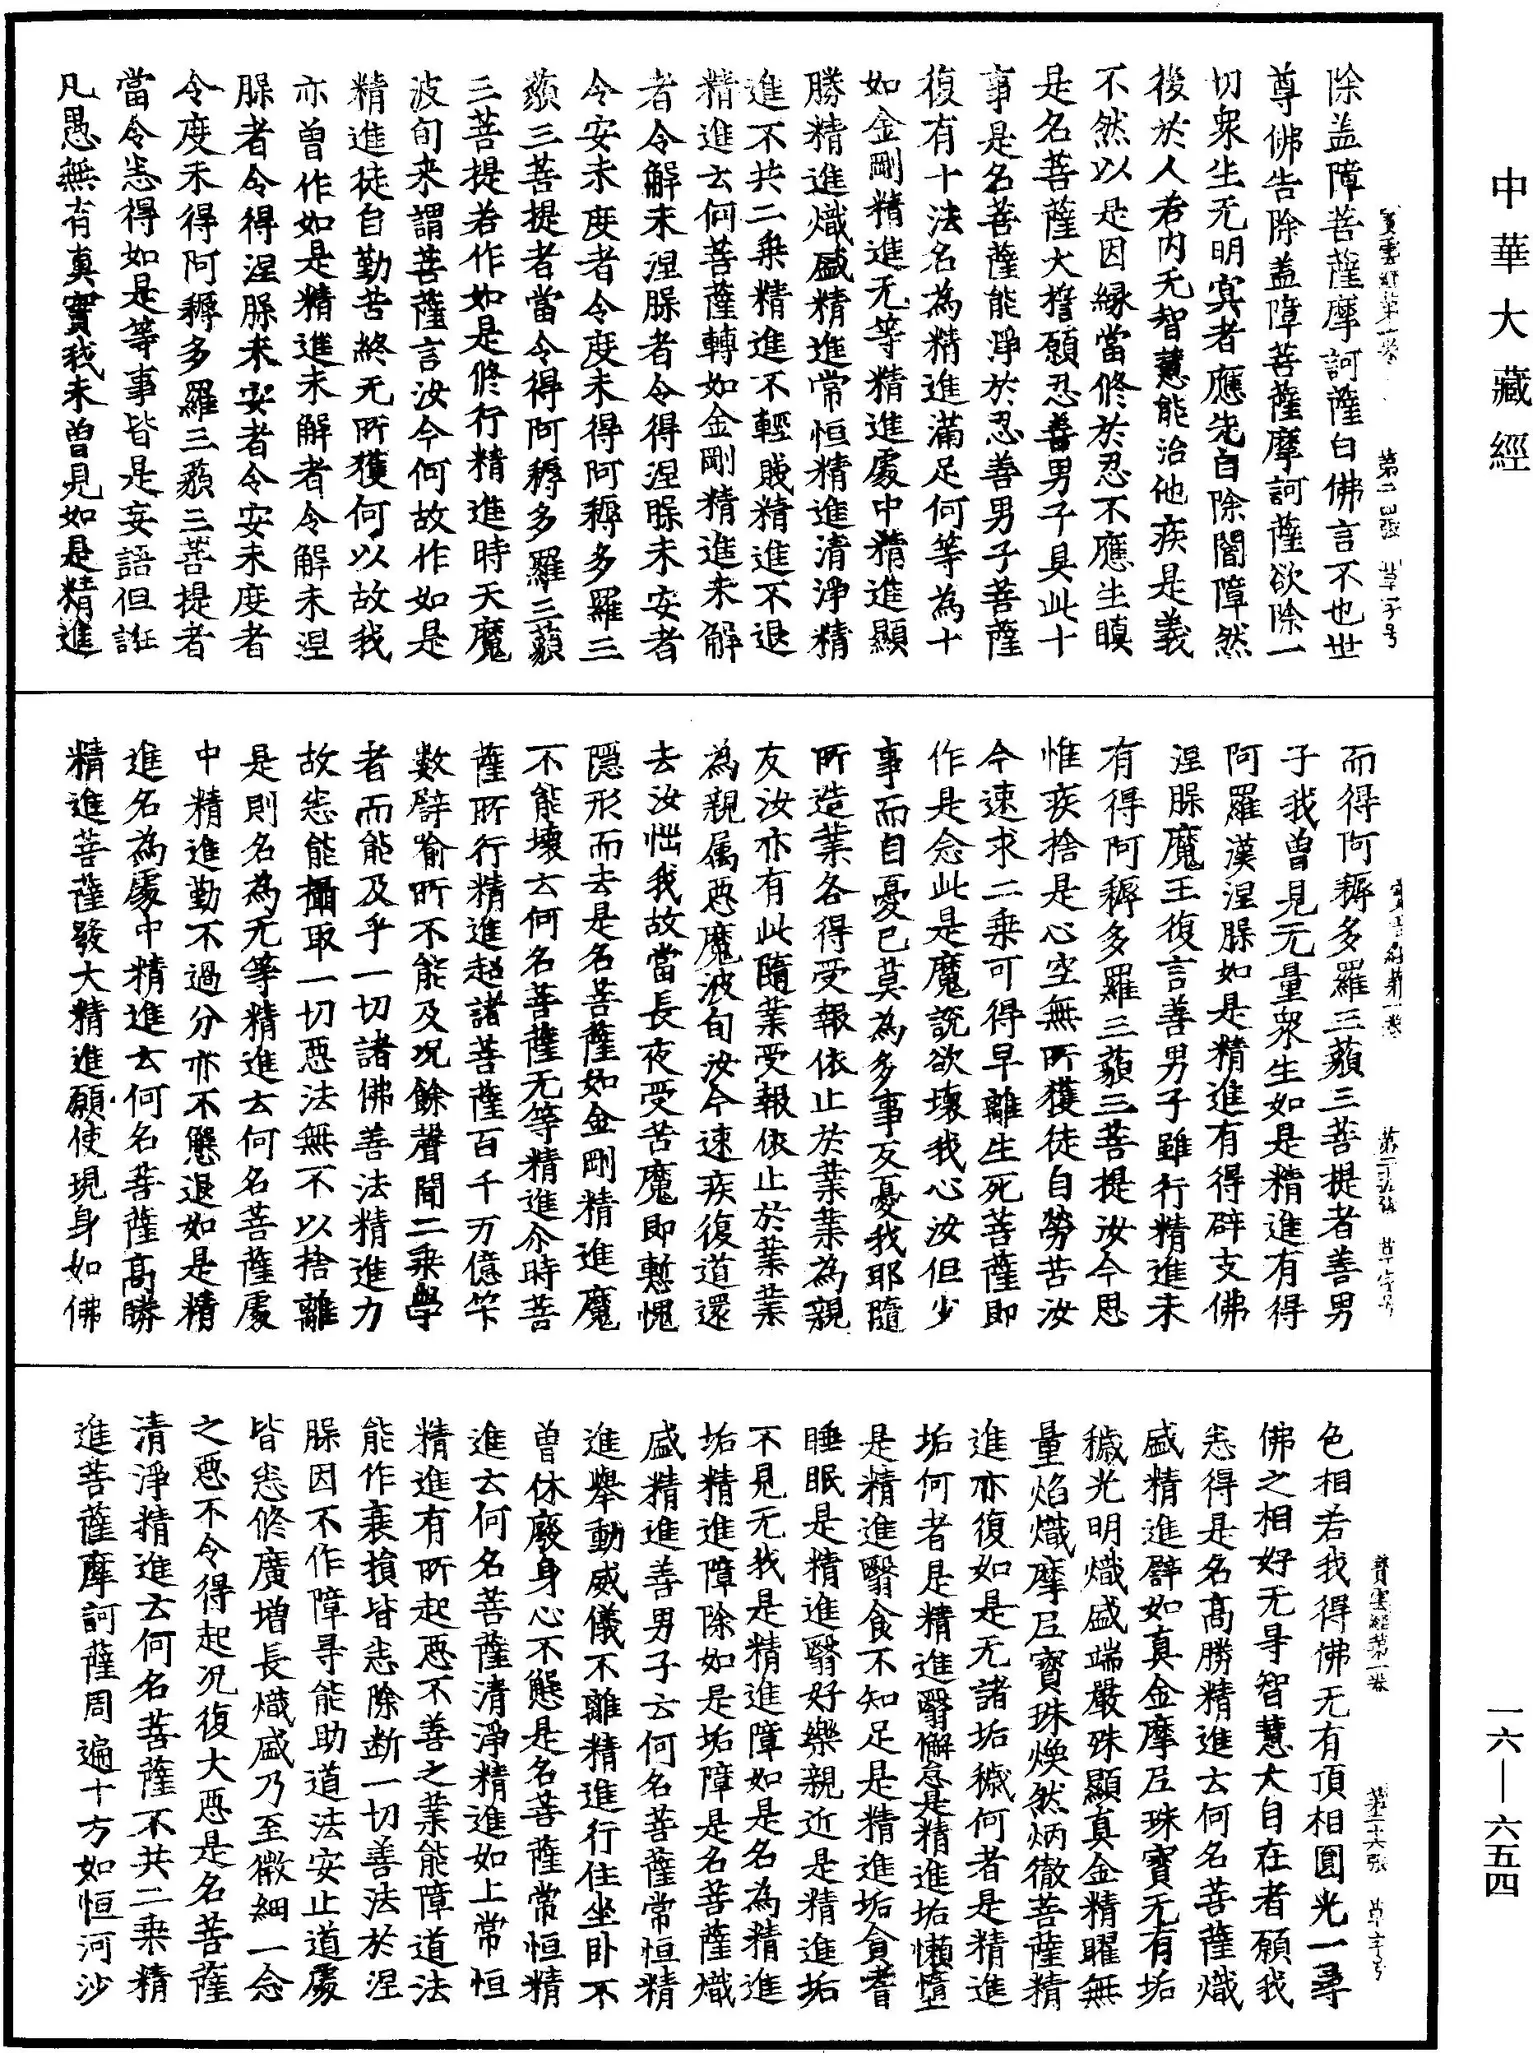 中華大藏經
寶雲經第一卷 第二四張 草字号
除盖障菩薩摩訶薩白佛言不也世
尊佛告除盖障菩薩摩訶薩欲除一
切衆生无明冥者應先自除闇障然
後於人若内无智慧能治他疾是義
不然以是因縁當修於忍不應生瞋
是名菩薩大擔願忍善男子具此十
事是名菩薩能淨於忍善男子菩薩
復有十法名為精進滿足何等為十
如金剛精進无等精進處中精進顯
勝精進熾盛精進常恒精進清淨精
進不共二乗精進不輕賎精進不退
精進云何菩薩轉如金剛精進未解
者令解未涅䏶者令得涅䏶未安者
令安未度者令度未得阿耨多羅三
藐三菩提者當令得阿耨多羅三藐
三菩提若作如是修行精進時天魔
波旬来謂菩薩言汝今何故作如是
精進徒自勤苦終无所獲何以故我
亦曽作如是精進未解者令解未涅
䏶者令得涅䏶未安者令安未度者
令度未得阿耨多羅三藐三菩提者
當令悉得如是等事皆是妄語但誑
凡愚無有真實我未曽見如是精進
寶雲經第一卷 第二十五張 草字号
而得阿耨多羅三藐三菩提者善男
子我曽見无量衆生如是精進有得
阿羅漢涅䏶如是精進有得辟支佛
涅䏶魔王復言善男子雖行精進未
有得阿耨多羅三藐三菩提汝今思
惟疾捨是心空無所獲徒自勞苦汝
今速求二乗可得早離生死菩薩即
作是念此是魔說欲壞我心汝但少
事而自憂己莫為多事友憂我耶隨
所造業各得受報依止於業業為親
友汝亦有此隨業受報依止於業業
為親属惡魔波旬汝今速疾復道還
去汝惱我故當長夜受苦魔即慙愧
隱形而去是名菩薩如金剛精進魔
不能壞云何名菩薩无等精進尒時菩
薩所行精進超諸菩薩百千万億筭
數譬喻所不能及况餘聲聞二乗學
者而能及乎一切諸佛善法精進力
故悉能攝取一切惡法無不以捨離
是則名為无等精進云何名菩薩處
中精進勤不過分亦不懸退如是精
進名為處中精進云何名菩薩高勝
精進菩薩發大精進願使現身如佛
寶雲經第一卷 第二十六張 草字号
色相若我得佛无有頂相圓光一尋
佛之相好无㝵智慧大自在者願我
悉得是名高勝精進云何名菩薩熾
盛精進譬如真金摩尼珠寶无有垢
穢光明熾盛端嚴殊顯真金精曜無
量焰熾摩尼寶珠煥然炳徹菩薩精
進亦復如是无諸垢穢何者是精進
垢何者是精進翳懈怠是精進垢懶墮
是精進翳食不知足是精進垢貪耆
睡眠是精進翳好樂親近是精進垢
不見无我是精進障如是名為精進
垢精進障除如是垢障是名菩薩熾
盛精進善男子云何名菩薩常恒精
進舉動威儀不離精進行住坐卧不
曽休廢身心不懸是名菩薩常恒精
進云何名菩薩清淨精進如上常恒
精進有所起惡不善之業能障道法
能作衰損皆悉除断一切善法於涅
䏶因不作障㝵能助道法安止道處
皆悉修廣增長熾盛乃至微細一念
之惡不令得起况復大惡是名菩薩
清淨精進云何名菩薩不共二乗精
進菩薩摩訶薩周遍十方如恒河沙
一六—六五四